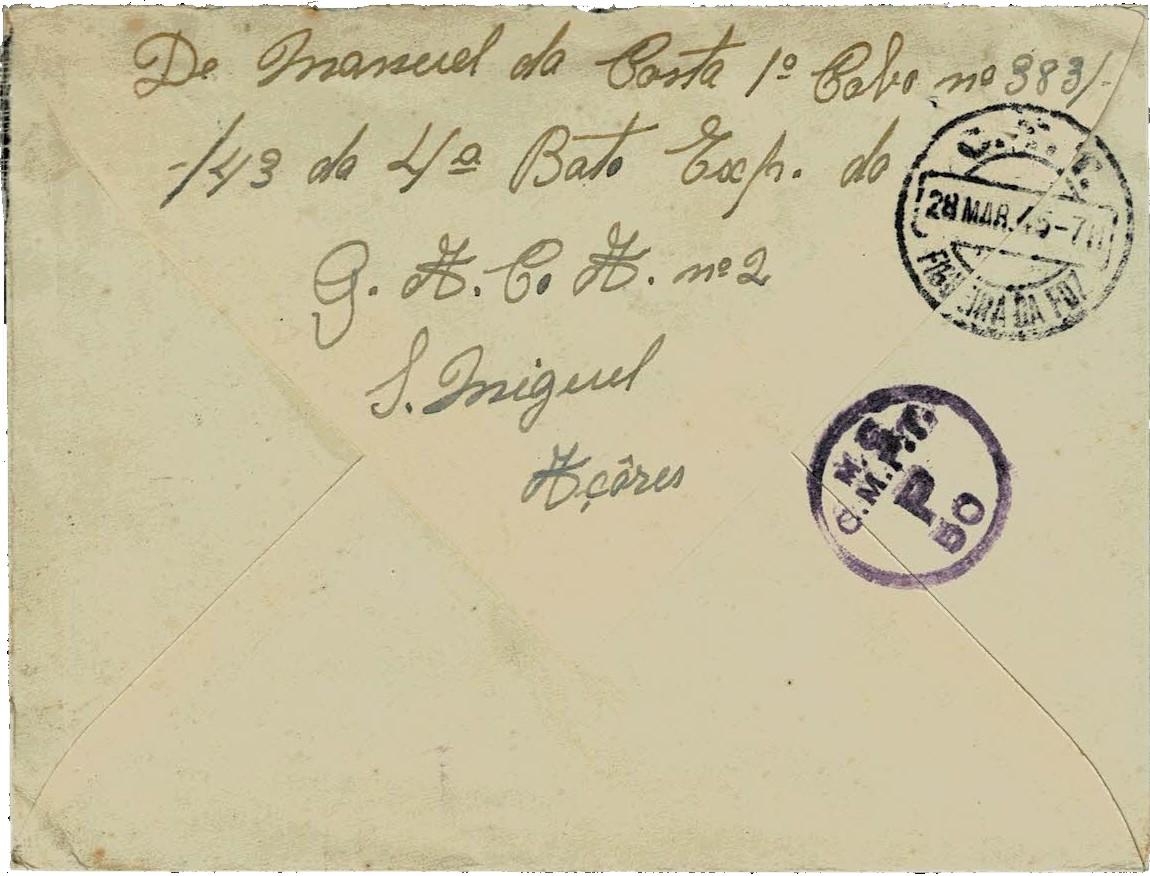 De Manuel da Costa 1º Cabo nº 383/-
-/43 da 4ª Batª Exp. do
G. A. C. A. nº 2
S. Miguel
Açôres
C.T.F.
28 MAR. 45-7H
FIGUEIRA DA FOZ
P